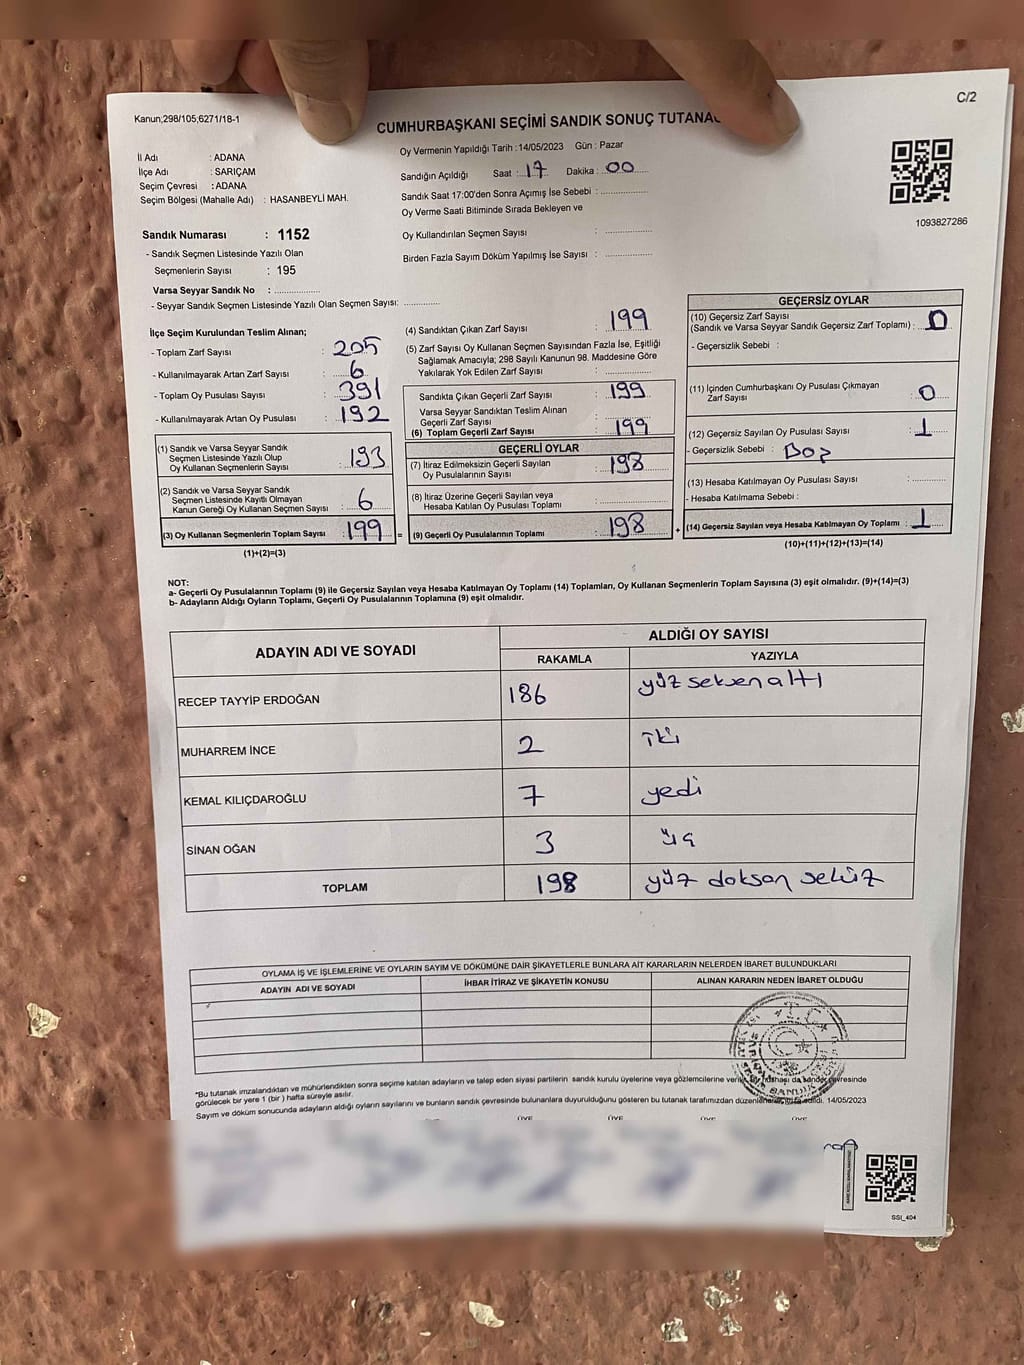 C/2
Kanun;298/105;6271/18-1
CUMHURBAŞKANI SEÇİMİ SANDIK SONUÇ
İl Adı : ADANA
İlçe Adı : SARIÇAM
Seçim Çevresi : ADANA
Seçim Bölgesi (Mahalle Adı) : HASANBEYLİ MAH.
Oy Vermenin Yapıldığı Tarih :14/05/2023 Gün : Pazar
Sandığın Açıldığı Saat : 17 Dakika : 00
Sandık Saat 17:00'den Sonra Açımış İse Sebebi :
Oy Verme Saati Bitiminde Sırada Bekleyen ve
Oy Kullandırılan Seçmen Sayısı :
Birden Fazla Sayım Döküm Yapılmış İse Sayısı :
1093827286
Sandık Numarası : 1152
- Sandık Seçmen Listesinde Yazılı Olan
Seçmenlerin Sayısı : 195
Varsa Seyyar Sandık No :
- Seyyar Sandık Seçmen Listesinde Yazılı Olan Seçmen Sayısı:
İlçe Seçim Kurulundan Teslim Alınan;
- Toplam Zarf Sayısı : 205
- Kullanılmayarak Artan Zarf Sayısı : 6
- Toplam Oy Pusulası Sayısı : 391
- Kullanılmayarak Artan Oy Pusulası : 192
(1) Sandık ve Varsa Seyyar Sandık
Seçmen Listesinde Yazılı Olup
Oy Kullanan Seçmenlerin Sayısı : 193
(2) Sandık ve Varsa Seyyar Sandık
Seçmen Listesinde Kayıtlı Olmayan
Kanun Gereği Oy Kullanan Seçmen Sayısı : 6
(3) Oy Kullanan Seçmenlerin Toplam Sayısı : 199 =
(1)+(2)=(3)
(4) Sandıktan Çıkan Zarf Sayısı : 199
(5) Zarf Sayısı Oy Kullanan Seçmen Sayısından Fazla İse, Eşitliği
Sağlamak Amacıyla; 298 Sayılı Kanunun 98. Maddesine Göre
Yakılarak Yok Edilen Zarf Sayısı :
Sandıkta Çıkan Geçerli Zarf Sayısı : 199
Varsa Seyyar Sandıktan Teslim Alınan
Geçerli Zarf Sayısı :
(6) Toplam Geçerli Zarf Sayısı : 199
GEÇERLİ OYLAR
(7) İtiraz Edilmeksizin Geçerli Sayılan
Oy Pusulalarının Sayısı : 198
(8) İtiraz Üzerine Geçerli Sayılan veya
Hesaba Katılan Oy Pusulası Toplamı :
(9) Geçerli Oy Pusulalarının Toplamı : 198 +
GEÇERSİZ OYLAR
(10) Geçersiz Zarf Sayısı
(Sandık ve Varsa Seyyar Sandık Geçersiz Zarf Toplamı) : 0
- Geçersizlik Sebebi :
(11) İçinden Cumhurbaşkanı Oy Pusulası Çıkmayan
Zarf Sayısı : 0
(12) Geçersiz Sayılan Oy Pusulası Sayısı : 1
- Geçersizlik Sebebi : Boş
(13) Hesaba Katılmayan Oy Pusulası Sayısı :
- Hesaba Katılmama Sebebi :
(14) Geçersiz Sayılan veya Hesaba Katılmayan Oy Toplamı : 1
(10)+(11)+(12)+(13)=(14)
NOT:
a- Geçerli Oy Pusulalarının Toplamı (9) ile Geçersiz Sayılan veya Hesaba Katılmayan Oy Toplamı (14) Toplamları, Oy Kullanan Seçmenlerin Toplam Sayısına (3) eşit olmalıdır. (9)+(14)=(3)
b- Adayların Aldığı Oyların Toplamı, Geçerli Oy Pusulalarının Toplamına (9) eşit olmalıdır.
ADAYIN ADI VE SOYADI ALDIĞI OY SAYISI
RAKAMLA YAZIYLA
RECEP TAYYİP ERDOĞAN 186 yüz seksen altı
MUHARREM İNCE 2 iki
KEMAL KILIÇDAROĞLU 7 yedi
SİNAN OĞAN 3 üç
TOPLAM 198 yüz doksan sekiz
OYLAMA İŞ VE İŞLEMLERİNE VE OYLARIN SAYIM VE DÖKÜMÜNE DAİR ŞİKAYETLERLE BUNLARA AİT KARARLARIN NELERDEN İBARET BULUNDUKLARI
ADAYIN ADI VE SOYADI İHBAR İTİRAZ VE ŞİKAYETİN KONUSU ALINAN KARARIN NEDEN İBARET OLDUĞU
T.C.
*Bu tutanak imzalandıktan ve mühürlendikten sonra seçime katılan adayların ve talep eden siyasi partilerin sandık kurulu üyelerine veya gözlemcilerine sandık çevresinde
görülecek bir yere 1 (bir ) hafta süreyle asılır.
Sayım ve döküm sonucunda adayların aldığı oyların sayılarını ve bunların sandık çevresinde bulunanlara duyurulduğunu gösteren bu tutanak tarafımızdan 14/05/2023
ÜYE ÜYE ÜYE ÜYE
SSI_404